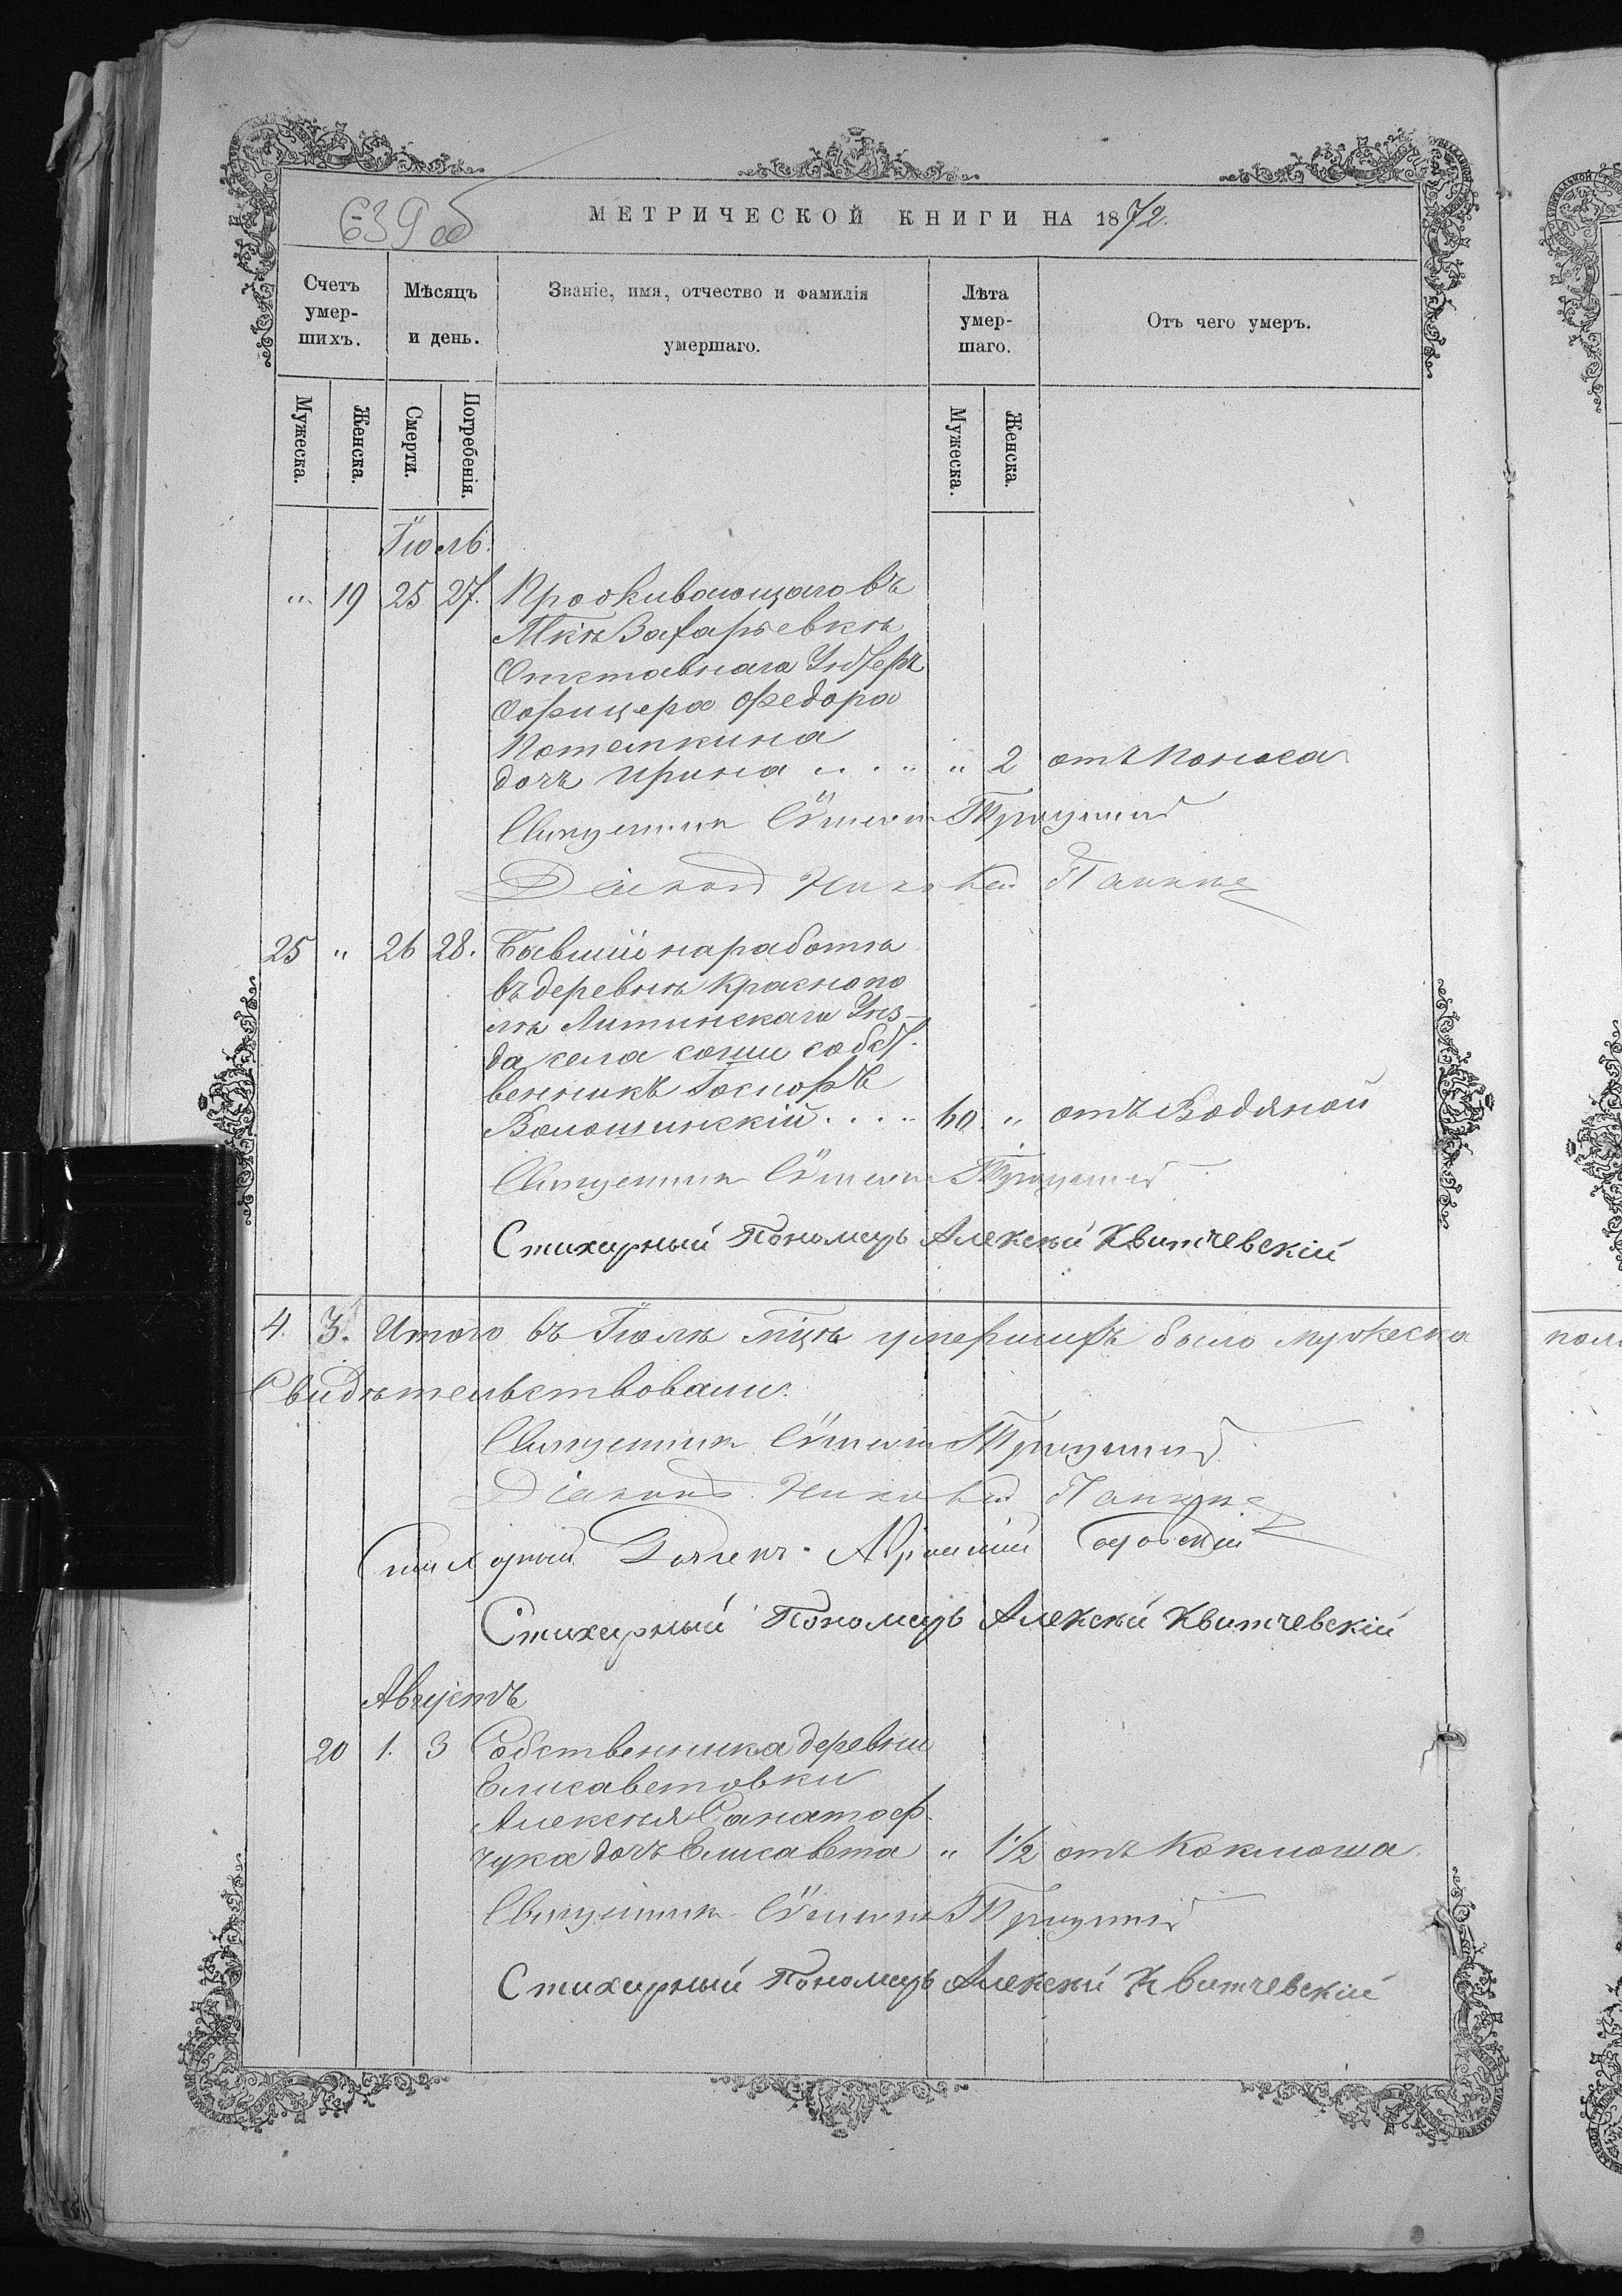 639 об
МЕТРИЧЕСКОЙ КНИГИ НА 1872.
Счетъ умер-шихъ.
Мѣсяцъ и день.
Званіе, имя, отчество и фамилія умершаго.
Лѣта умер-шаго.
Отъ чего умеръ.
Мужеска.
Женска.
Смерти.
Погребенія.
Мужеска.
Женска.
Іюль.
" 19 25 27. Проживающаго въ
Мкѣ Захарьевкѣ
Отставнаго Унтеръ
Офицера Федора
Потемкина
дочь Ирина " 2 отъ Поноса
Священник Симеон
Діаконъ Николай
25 " 26 28. Бывшій на работѣ
въ деревнѣ Краснопо
лѣ Литинскаго Уѣз-
да села собст-
венникъ
Волошинскій 60 " отъ Водяной
Священник Симеон
Стихарный Пономарь Алексѣй Квитчевскій
4. 3. Итого въ Іюлѣ мцѣ умершихъ было мужеска
Свидѣтельствовали:
Священник Симеон
Діаконъ Николай
Стихарный
Стихарный Пономарь Алексѣй Квитчевскій
Августъ
20 1. 3 Собственника деревни
Елисаветовки
Алексѣя
чука дочь Елисавета " 1½ отъ Коклюша.
Священник Симеон
Стихарный Пономарь Алексѣй Квитчевскій